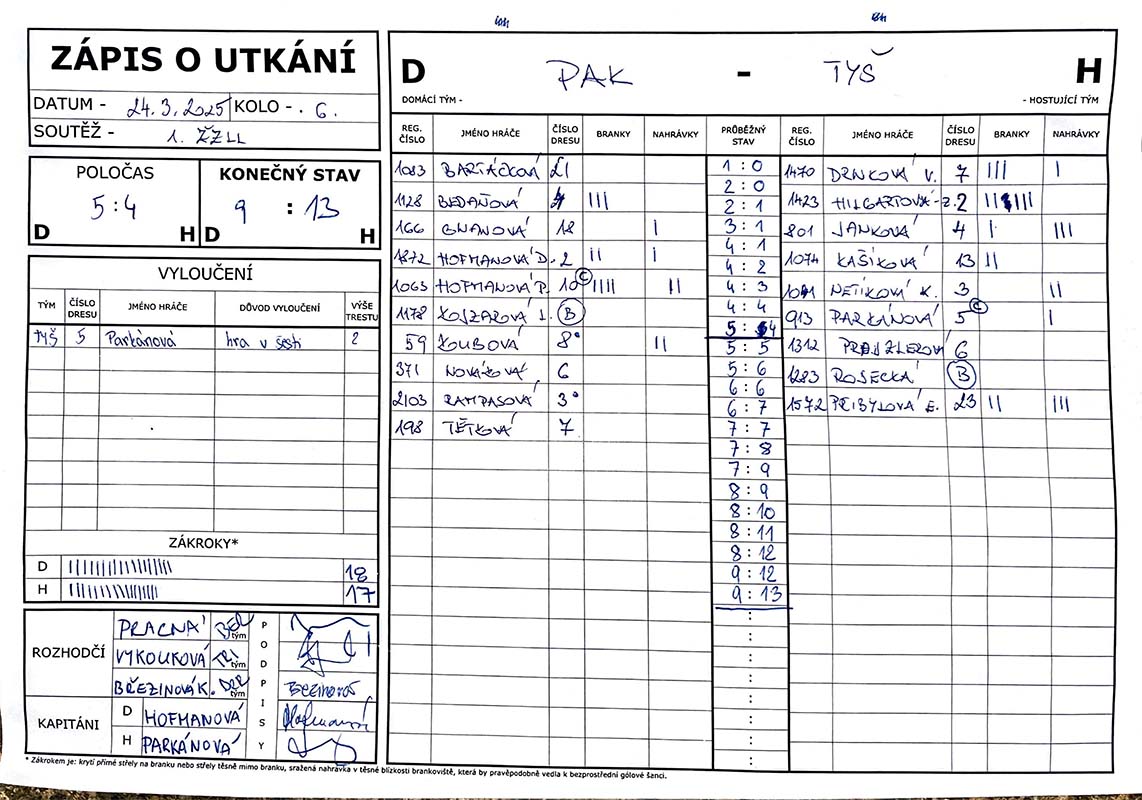 ZÁPIS O UTKÁNÍ
DATUM - 24.3.2025 KOLO - . 6.
SOUTĚŽ - 1. ŽZLL
POLOČAS
5:4
D H
KONEČNÝ STAV
9 : 13
D H
VYLOUČENÍ
TÝM ČÍSLO DRESU JMÉNO HRÁČE DŮVOD VYLOUČENÍ VÝŠE TRESTU
TYŠ 5 Parkánová hra v šesti 2
ZÁKROKY*
D |||||||||||||||||| 18
H ||||||||||||||||| 17
ROZHODČÍ
PRACNÁ tým
VYKOUKOVÁ TRI tým
BŘEZINOVÁ K. tým
KAPITÁNI
D HOFMANOVÁ
H PARKÁNOVÁ
PODPISY
Březinová
Hofmanová
D PAK - TYŠ H
DOMÁCÍ TÝM - - HOSTUJÍCÍ TÝM
REG. ČÍSLO JMÉNO HRÁČE ČÍSLO DRESU BRANKY NAHRÁVKY PRŮBĚŽNÝ STAV REG. ČÍSLO JMÉNO HRÁČE ČÍSLO DRESU BRANKY NAHRÁVKY
1083 BARTÁČKOVÁ 21
1128 BEDAŇOVÁ 4 |||
166 GNANOVÁ 18 |
1872 HOFMANOVÁ D. 2 || |
1063 HOFMANOVÁ P. 10 © |||| ||
1178 KOJZAROVÁ L. B
59 KOUBOVÁ 8 ||
371 NOVÁKOVÁ 6
2103 RAMPASOVÁ 3
198 TĚŤKOVÁ 7
1 : 0
2 : 0
2 : 1
3 : 1
4 : 1
4 : 2
4 : 3
4 : 4
5 : 4
5 : 5
5 : 6
6 : 6
6 : 7
7 : 7
7 : 8
7 : 9
8 : 9
8 : 10
8 : 11
8 : 12
9 : 12
9 : 13
:
:
:
:
:
:
:
:
1470 DRNKOVÁ V. 7 ||| |
1423 HILGARTOVÁ - Z. 2
801 JANKOVÁ 4 | |||
1074 KAŠÍKOVÁ 13 ||
NETÍKOVÁ K. 3 ||
913 PARKÁNOVÁ 5 © |
1312 PRAJZLEROVÁ 6
1283 ROSECKÁ B
1572 PŘIBYLOVÁ E. 23 || |||
* Zákrokem je: krytí přímé střely na branku nebo střely těsně mimo branku, sražená nahrávka v těsné blízkosti brankoviště, která by pravěpodobně vedla k bezprostřední gólové šanci.